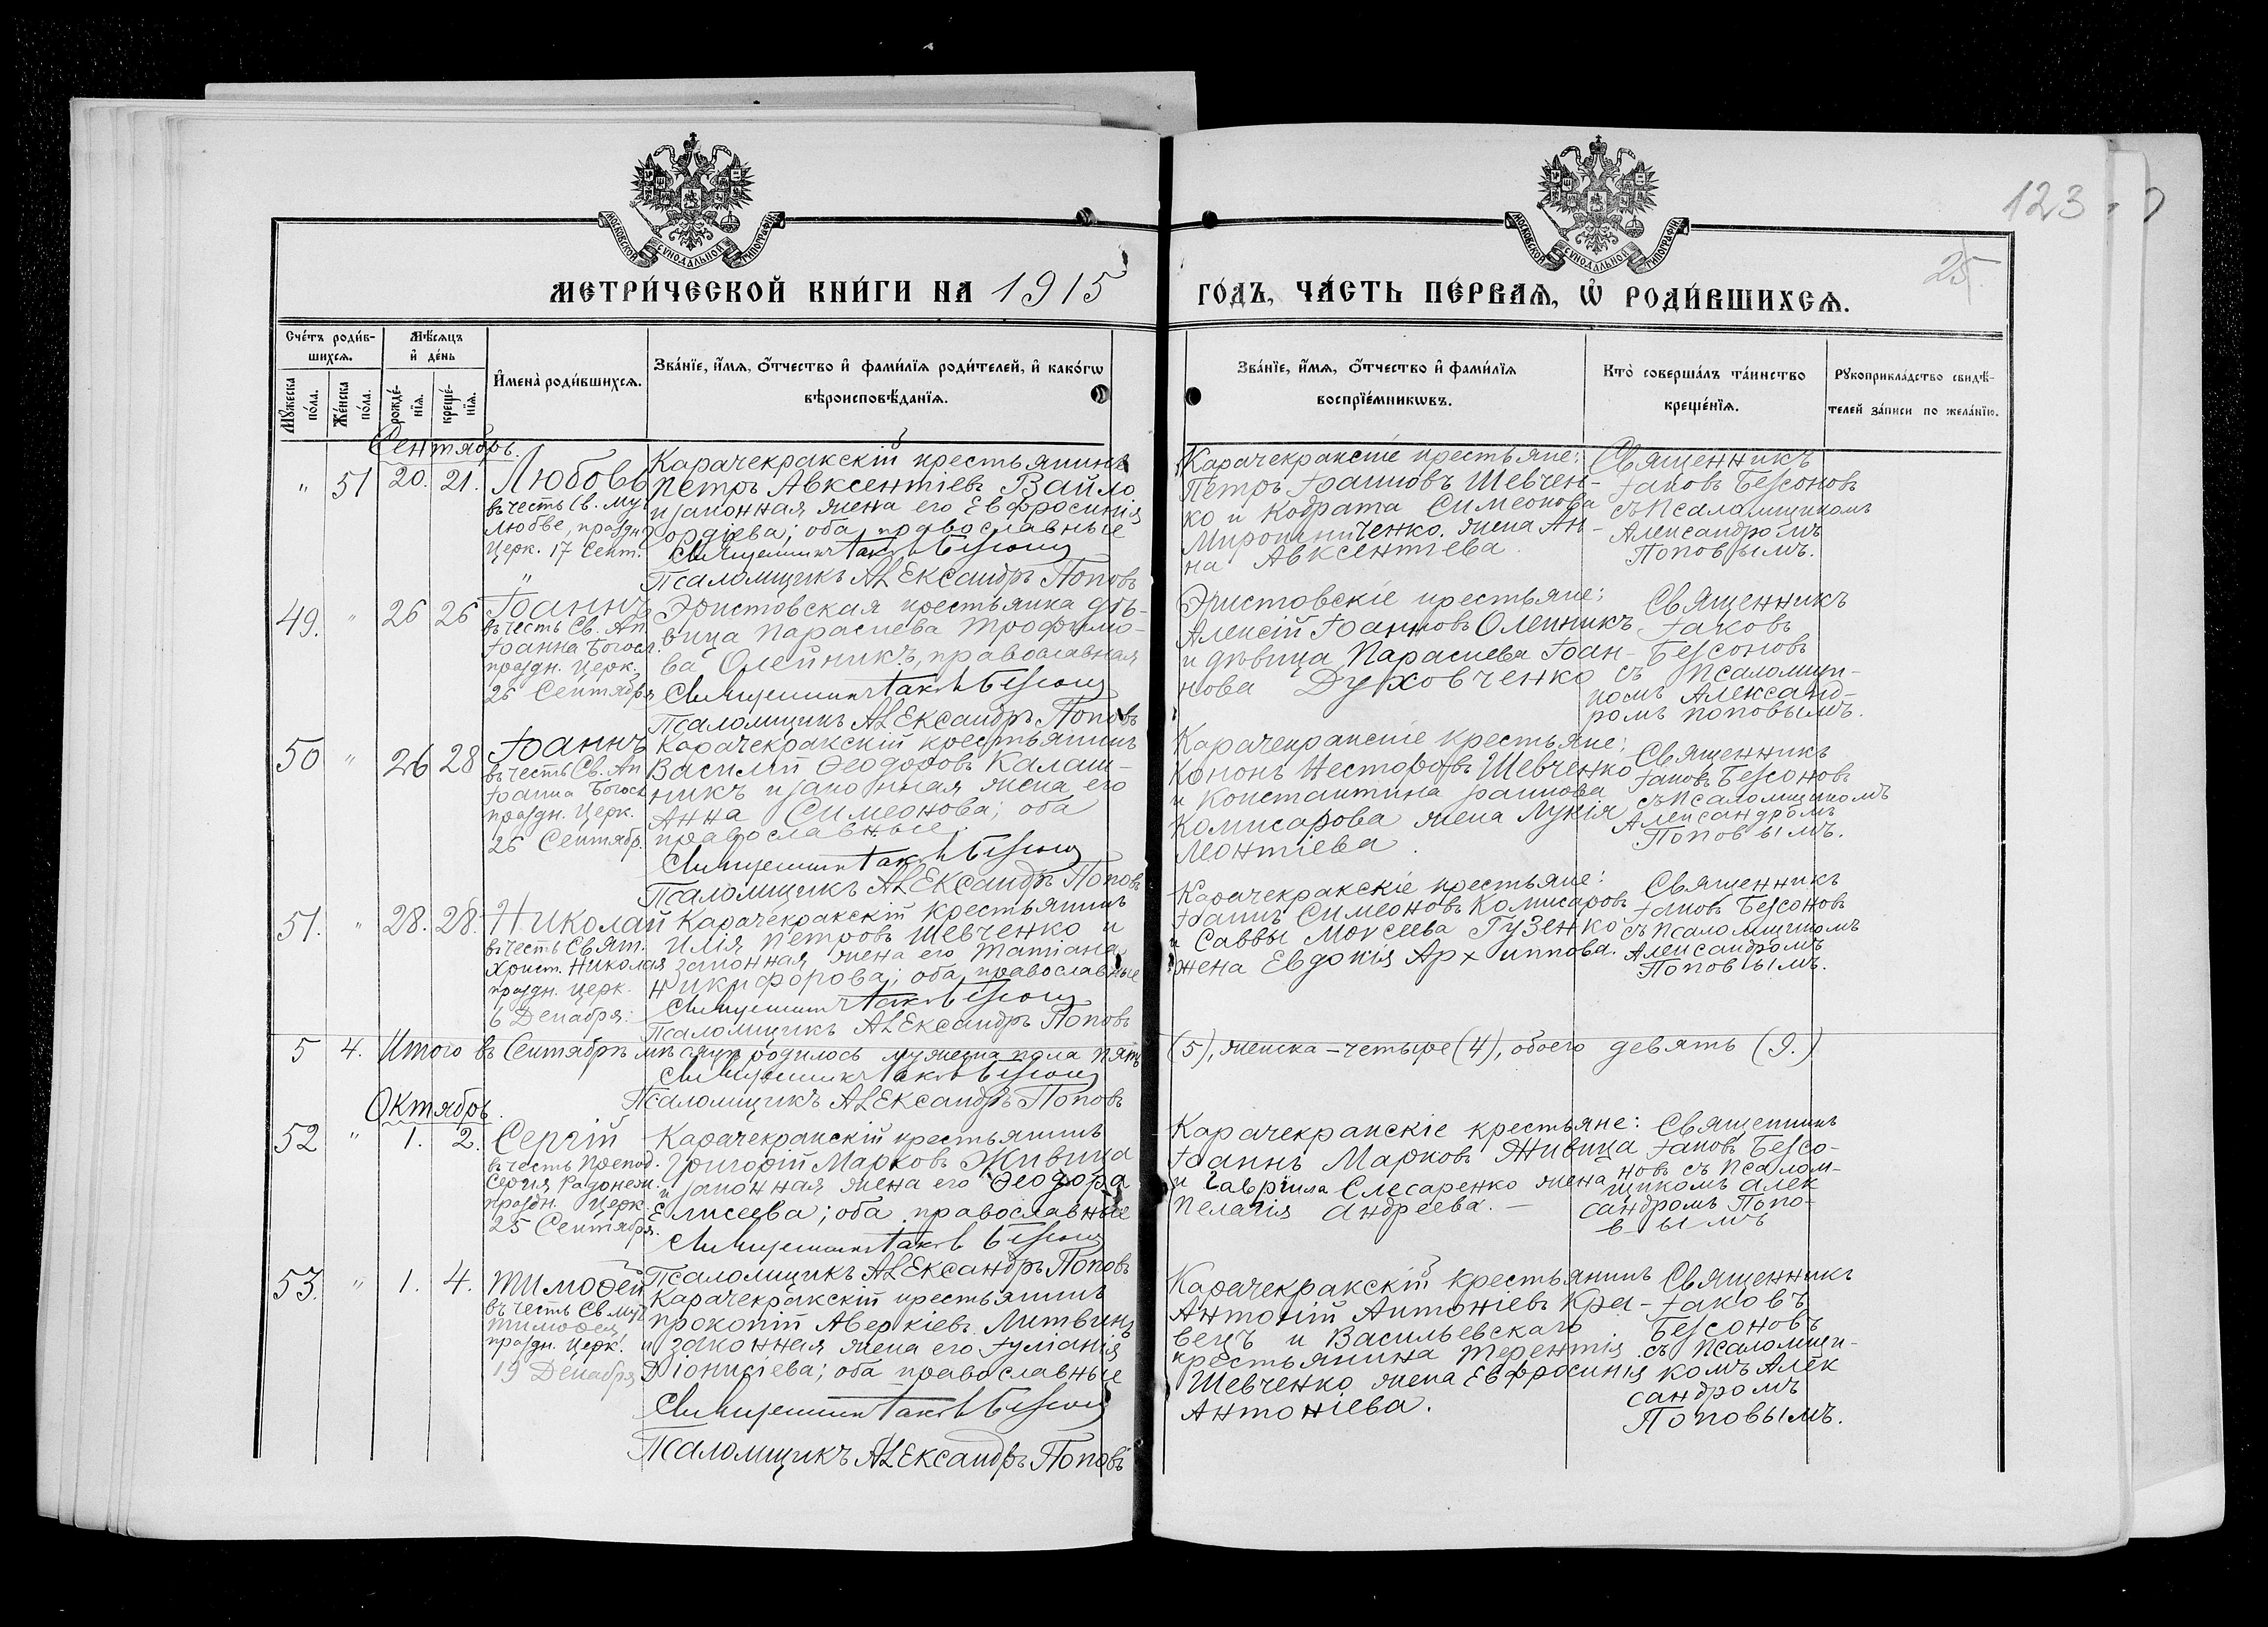 123
25.
МОСКОВСКОЙ СѴНОДАЛЬНОЙ ТИПОГРАФІИ
МОСКОВСКОЙ СѴНОДАЛЬНОЙ ТИПОГРАФІИ
МЕТРИ́ЧЕСКОЙ КНИ́ГИ НА 1915 ГО́ДЪ, ЧА́СТЬ ПЕ́РВАЯ, Ѡ҆ РОДИ́ВШИХСЯ.
Сче́тъ роди́в-
шихся.
Мꙋ́жеска по́ла.
Же́нска по́ла.
Мѣ́сяцъ
и҆ де́нь
рожде́-
нїя.
креще́-
нїя.
И҆мена̀ роди́вшихся.
Зва́нїе, и҆́мя, ѻ҆́тчество и҆ фами́лїя роди́телей, и҆ како́гѡ
вѣроисповѣ́данїя.
Зва́нїе, и҆́мя, ѻ҆́тчество и҆ фами́лїя
воспрїе́мникѡвъ.
Кто̀ соверша́лъ та́инство
креще́нїя.
Рꙋкоприкла́дство свидѣ́-
телей за́писи по жела́нїю.
Сентябрь.
" 51 20. 21. Любовь
въ честь Св. му
Любве, праздн
Церк. 17 Сент.
Карачекракскій крестьянинъ
Петръ Авксентіевъ Вайло
и законная жена его Евфросинія
Гордіева; оба православные
Священникъ Іаковъ Безсоновъ
Псаломщикъ Александръ Поповъ
Карачекракскіе крестьяне:
Петръ Іоанновъ Шевчен-
ко и Кодрата Симеонова
Мирошниченко жена Ан-
на Авксентіева.
Священникъ
Іаковъ Безсоновъ
съ Псаломщикомъ
Александромъ
Поповымъ.
49. " 26 26 Іоаннъ
въ честь Св. Ап
Іоанна Богосл.
праздн. Церк.
26 Сентября
Эристовская крестьянка дѣ-
вица Параскева Трофимо-
ва Олейникъ, православная
Священникъ Іаковъ Безсоновъ
Псаломщикъ Александръ Поповъ
Эристовскіе крестьяне:
Алексій Іоанновъ Олейникъ
и дѣвица Параскева Іоан-
нова Духовченко
Священникъ
Іаковъ
Безсоновъ
съ Псаломщи-
комъ Александ-
ромъ Поповымъ.
50 " 26 28 Іоаннъ
въ честь Св. Ап
Іоанна Богосл
праздн. Церк.
26 Сентябр.
Карачекракскій крестьянинъ
Василій Ѳеодоровъ Калаш-
никъ и законная жена его
Анна Симеонова; оба
православные.
Священникъ Іаковъ Безсоновъ
Псаломщикъ Александръ Поповъ
Карачекракскіе крестьяне:
Кононъ Несторовъ Шевченко
и Константина Іоаннова
Комисарова жена Лукія
Леонтіева.
Священникъ
Іаковъ Безсоновъ
съ Псаломщикомъ
Александромъ
Поповымъ.
51. " 28. 28. Николай
въ честь Свят.
Христ. Николая
праздн. Церк.
6 Декабря.
Карачекракскій крестьянинъ
Илія Петровъ Шевченко и
законная жена его Татіана
Никифорова; оба православные
Священникъ Іаковъ Безсоновъ
Псаломщикъ Александръ Поповъ
Карачекракскіе крестьяне:
Іоаннъ Симеоновъ Комисаровъ
и Саввы Моѵсеева Гузенко
жена Евдокія Архиппова.
Священникъ
Іаковъ Безсоновъ
съ Псаломщикомъ
Александромъ
Поповымъ.
5 4. Итого въ Сентябрѣ мѣсяцѣ родилось мужеска пола пять (5), женска – четыре (4), обоего девять (9.)
Священникъ Іаковъ Безсоновъ
Псаломщикъ Александръ Поповъ
Октябрь.
52 " 1. 2. Сергій
въ честь Препод.
Сергія Радонеж.
праздн. Церк.
25 Сентября.
Карачекракскій крестьянинъ
Григорій Марковъ Живица
и законная жена его Ѳеодора
Елисеева; оба православные
Священникъ Іаковъ Безсоновъ
Псаломщикъ Александръ Поповъ
Карачекракскіе крестьяне:
Іоаннъ Марковъ Живица
и Гавріила Слесаренко жена
Пелагія Андреева. —
Священникъ
Іаковъ Безсо-
новъ съ Псалом-
щикомъ Алек
сандромъ Попо-
вымъ
53. " 1. 4. Тимоѳей
въ честь Св. муч
Тимоѳея
праздн. Церк.
19 Декабря
Карачекракскій крестьянинъ
Прокопій Аверкіевъ Литвинъ
и законная жена его Іуліанія
Діонисіева; оба православные
Священникъ Іаковъ Безсоновъ
Псаломщикъ Александръ Поповъ
Карачекракскій крестьянинъ
Антоній Антоніевъ Кра-
вецъ и Васильевскаго
крестьянина Терентія
Шевченко жена Евфросинія
Антоніева.
Священникъ
Іаковъ
Безсоновъ
съ Псаломщи-
комъ Алек
сандромъ
Поповымъ.